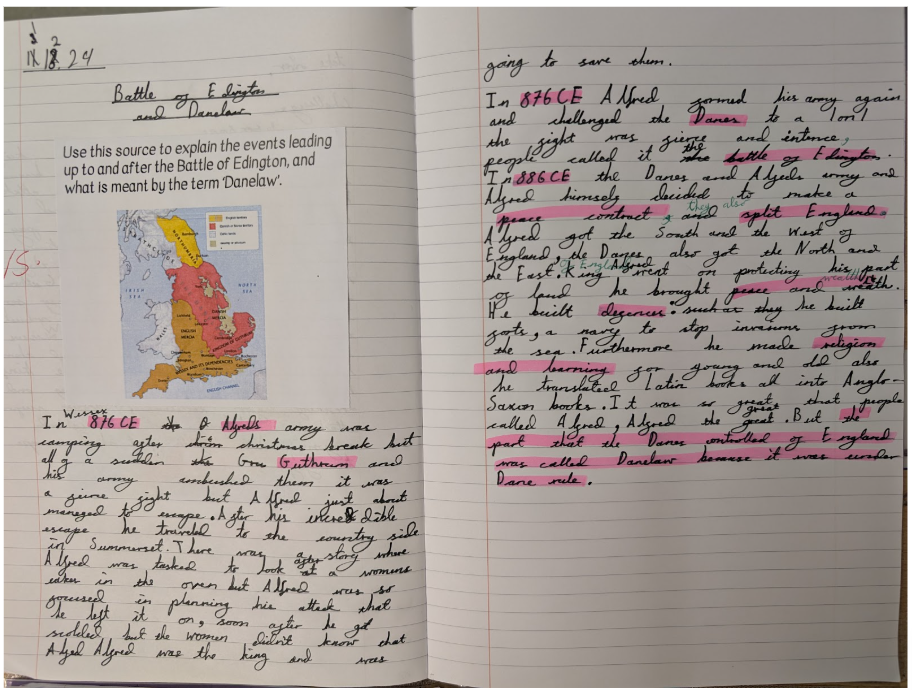 24
Battle of Edington
and Danelaw
Use this source to explain the events leading
up to and after the Battle of Edington, and
what is meant by the term 'Danelaw'.
NORTHUMBRIA
STRATHCLYDE
IRISH
SEA
NORTH
SEA
WALES
ENGLISH
MERCIA
DANISH
MERCIA
WESSEX AND ITS DEPENDENCIES
ENGLISH CHANNEL
15.
Wessex
In 876CE Alfreds army was
camping after christmas break but
all of a sudden Guthrum and
his army ambushed them it was
a fierce fight but Alfred just about
maneged to escape. After his incredible
escape he traveled to the country side
in Summerset. There was a story where
Alfred was tasked to look after a womens
cakes in the oven but Alfred was so
focused in planning his attack that
he left it on, soon after he got
scolded but the women didn't know that
Alfred was the king and was
going to save them.
In 876CE Alfred formed his army again
and challenged the Danes to a 1 on 1
the fight was fierce and intence,
people called it the battle of Edington.
In 886CE the Danes and Alfreds army and
Alfred himself decided to make a
peace contract, and they also split England.
Alfred got the South and the West of
England, the Danes also got the North and
the East. King of England Alfred went on protecting his part
of land he brought peace and wealth.
He built defences. such as they he built
forts, a navy to stop invasions from
the sea. Furthermore he made religion
and learning for young and old also
he translated Latin books all into Anglo-
Saxon books. It was so great that people
called Alfred, Alfred the great. But the
part that the Danes controlled of England
was called Danelaw because it was under
Dane rule.